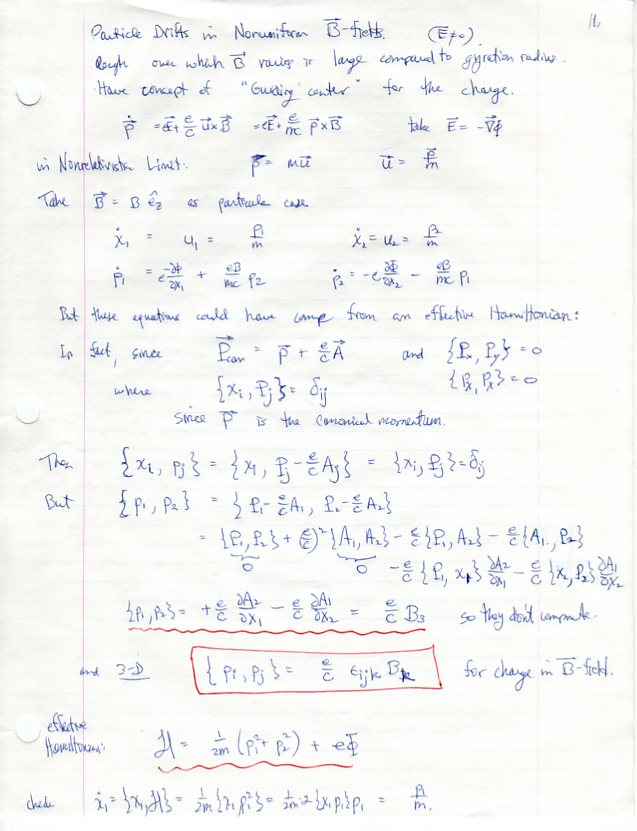 16
Particle Drifts in Nonuniform B⃗-fields. (E⃗≠0).
length over which B⃗ varies is large compared to gyration radius.
Have concept of "Guiding center" for the charge.
ṗ⃗ = eE⃗ + e/c u⃗×B⃗ = eE⃗ + e/mc p⃗×B⃗ take E⃗ = -∇⃗Φ
in Nonrelativistic Limit: p⃗ = mu⃗ u⃗ = p⃗/m
Take B⃗ = B ê_z as particular case
ẋ₁ = u₁ = p₁/m ẋ₂ = u₂ = p₂/m
ṗ₁ = e -∂Φ/∂x₁ + eB/mc p₂ ṗ₂ = -e ∂Φ/∂x₂ - eB/mc p₁
But these equations could have come from an effective Hamiltonian:
In fact, since P⃗_can = p⃗ + e/c A⃗ and {P_x, P_y} = 0
where {x_i, P_j} = δ_ij {P_x, P_x} = 0
since P⃗ is the canonical momentum.
Then {x_i, p_j} = {x_i, P_j - e/c A_j} = {x_i, P_j} = δ_ij
But {p₁, p₂} = {P₁ - e/c A₁, P₂ - e/c A₂}
= {P₁, P₂} + (e/c)² {A₁, A₂} - e/c {P₁, A₂} - e/c {A₁, P₂}
0 0 - e/c {P₁, x₁} ∂A₂/∂x₁ - e/c {x₂, P₂} ∂A₁/∂x₂
{p₁, p₂} = + e/c ∂A₂/∂x₁ - e/c ∂A₁/∂x₂ = e/c B₃ so they don't commute.
and 3-D {p_i, p_j} = e/c ε_ijk B_k for charge in B⃗-field.
effective
Hamiltonian: H = 1/2m (p₁² + p₂²) + eΦ
check ẋ₁ = {x₁, H} = 1/2m {x₁ p₁²} = 1/2m · 2 {x₁ p₁} p₁ = p₁/m.